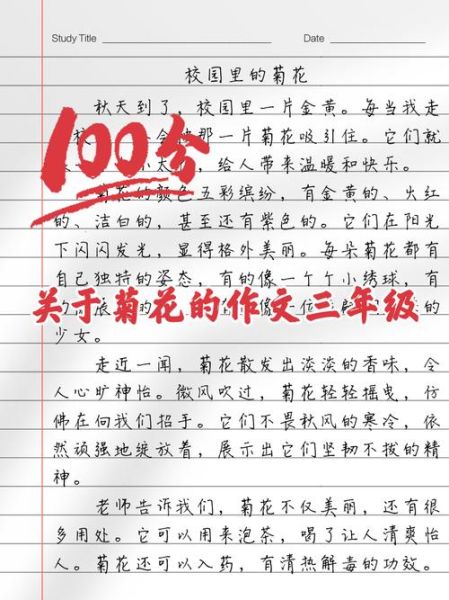 Study Title
Date
校园里的菊花
秋天到了，校园里一片金黄。每当我走
校 会被那一片菊花吸引住。它们就
小太 ，给人带来温暖和快乐。
100分
菊花的颜色五彩缤纷，有金黄的、火红
的、洁白的，甚至还有紫色的。它们在阳光
下闪闪发光，显得格外美丽。每朵菊花都有
自己独特的姿态，有的像一个个小绣球，有
关于菊花的作文三年级
的
少女。
走近一闻，菊花散发出淡淡的香味，令
人心旷神怡。微风吹过，菊花轻轻摇曳，仿
佛在向我们招手。它们不畏秋风的寒冷，依
然顽强地绽放着，展示出它们坚韧不拔的精
神。
老师告诉我们，菊花不仅美丽，还有很
多用处。它可以用来泡茶，喝了让人清爽怡
人。菊花还可以入药，有清热解毒的功效。